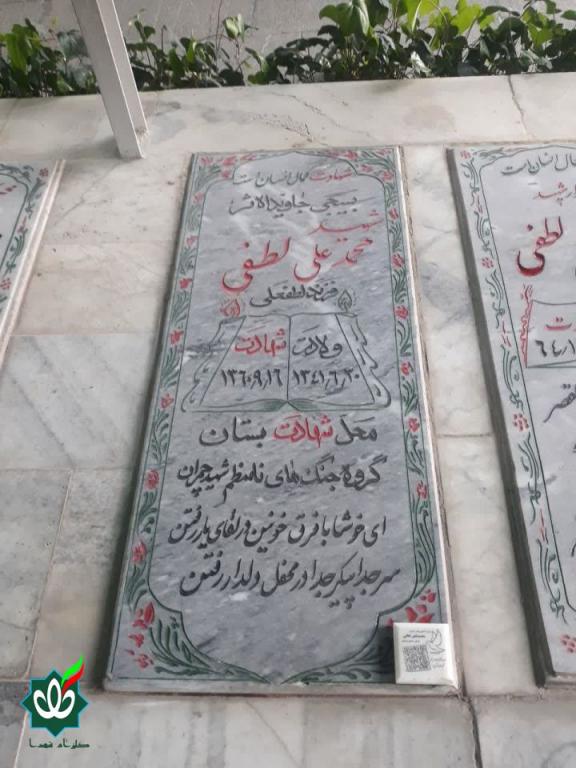 شهادت کمال انسان است
بسیجی جاویدالاثر
شهید
محمد علی لطفی
فرزند لطفعلی
ولادت شهادت
۱۳۴۱٫۶٫۲۰ ۱۳۶۰٫۹٫۱۶
محل شهادت بستان
گروه جنگ های نامنظم شهید چمران
ای خوشا با فرق خونین در لقای یار رفتن
سر جدا پیکر جدا در محفل دلدار رفتن
کمال انسان است
شهید
لطفی
۶۴
گلزار شهدا